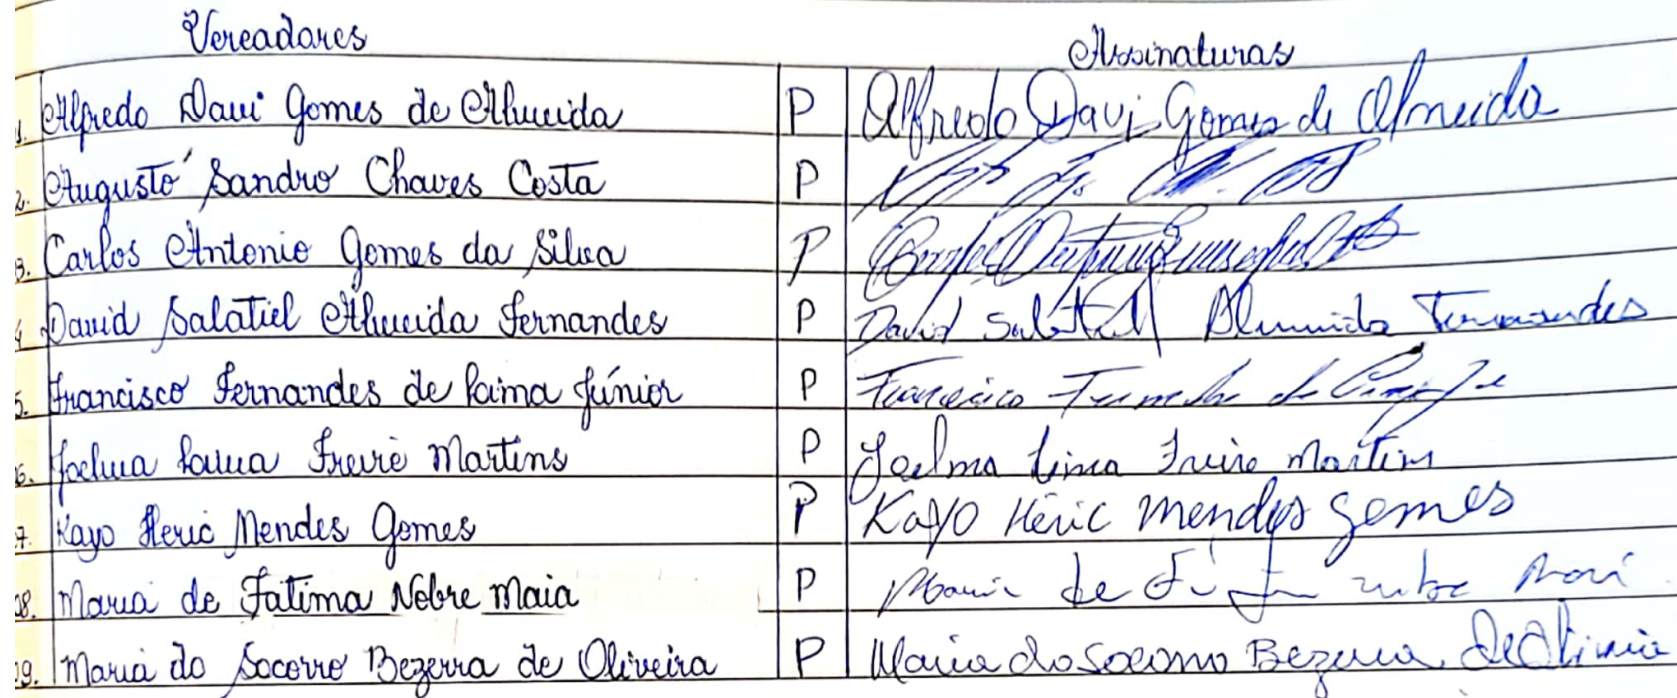 Vereadores Assinaturas
01. Alfredo Davi Gomes de Almeida P Alfredo Davi Gomes de Almeida
02. Augusto Sandro Chaves Costa P
03. Carlos Antonio Gomes da Silva P
04. David Salatiel Almeida Fernandes P David Salatiel Almeida Fernandes
05. Francisco Fernandes de Lima Júnior P Francisco
06. Joelma Lima Freire Martins P Joelma Lima Freire Martins
07. Kayo Heric Mendes Gomes P Kayo Héric Mendes Gomes
08. Maria de Fatima Nobre Maia P Maria de
09. Maria do Socorro Bezerra de Oliveira P Maria do Socorro Bezerra de Oliveira